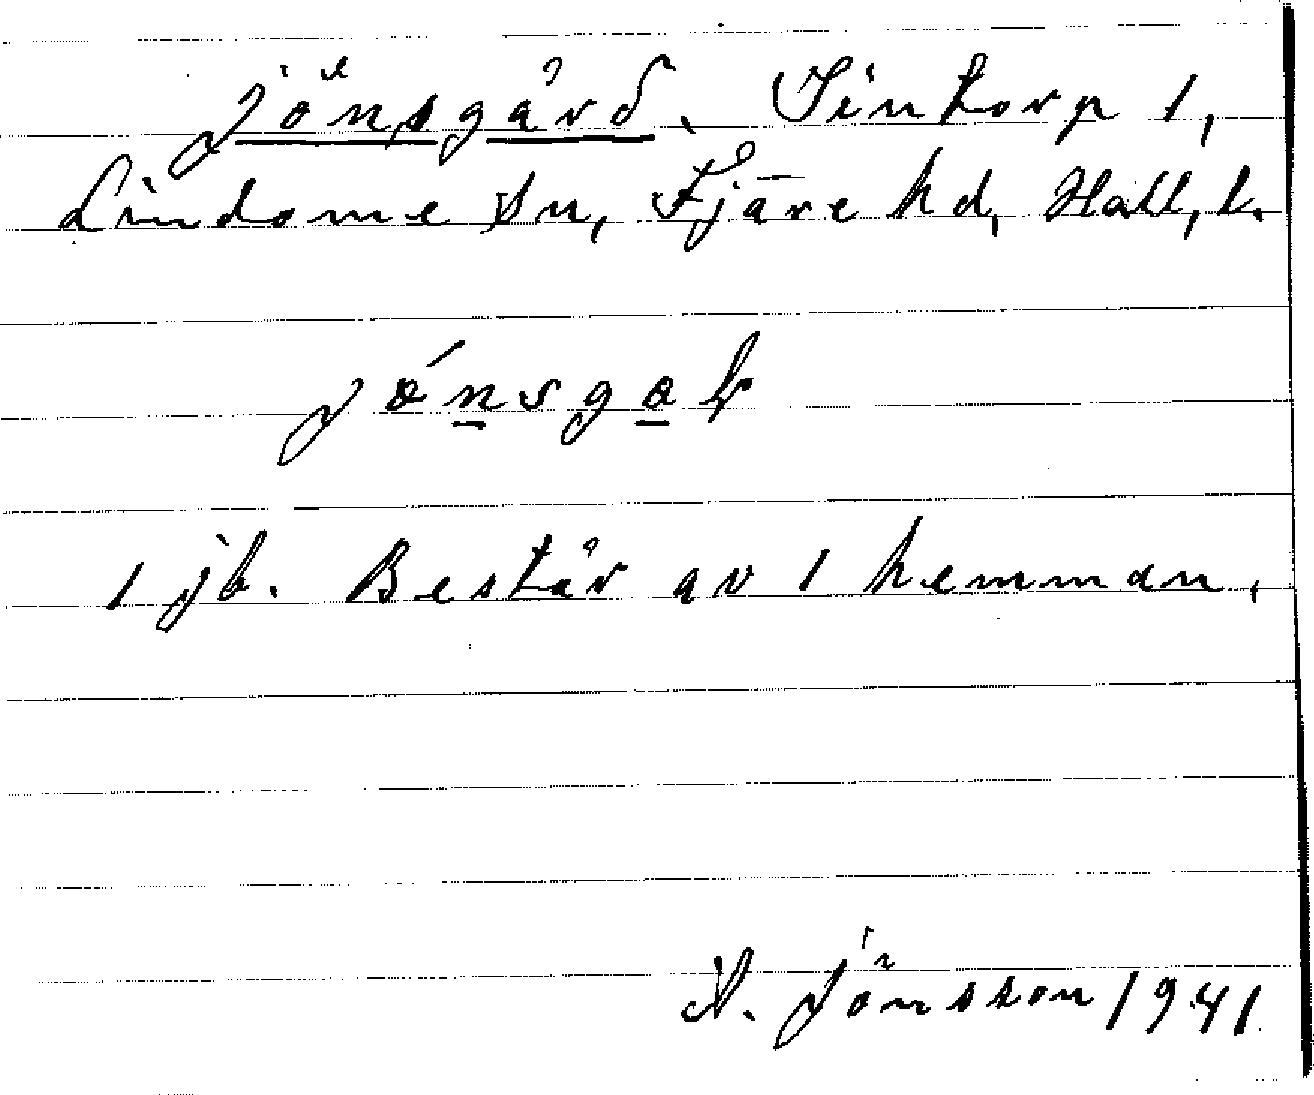 Jönsgård. Sintorp 1,
Lindome sn, Fjäre hd, Hall, l.
1 jb. Består av 1 hemman.
N. Jönsson 1941